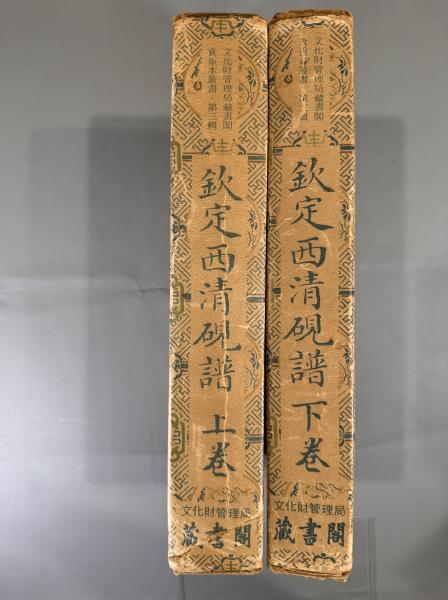 文化財管理局藏書閣
貴重本叢書 第三輯
欽定西清硯譜 上卷
文化財管理局
藏書閣
文化財管理局藏書閣
貴重本叢書 第三輯
欽定西清硯譜 下卷
文化財管理局
藏書閣